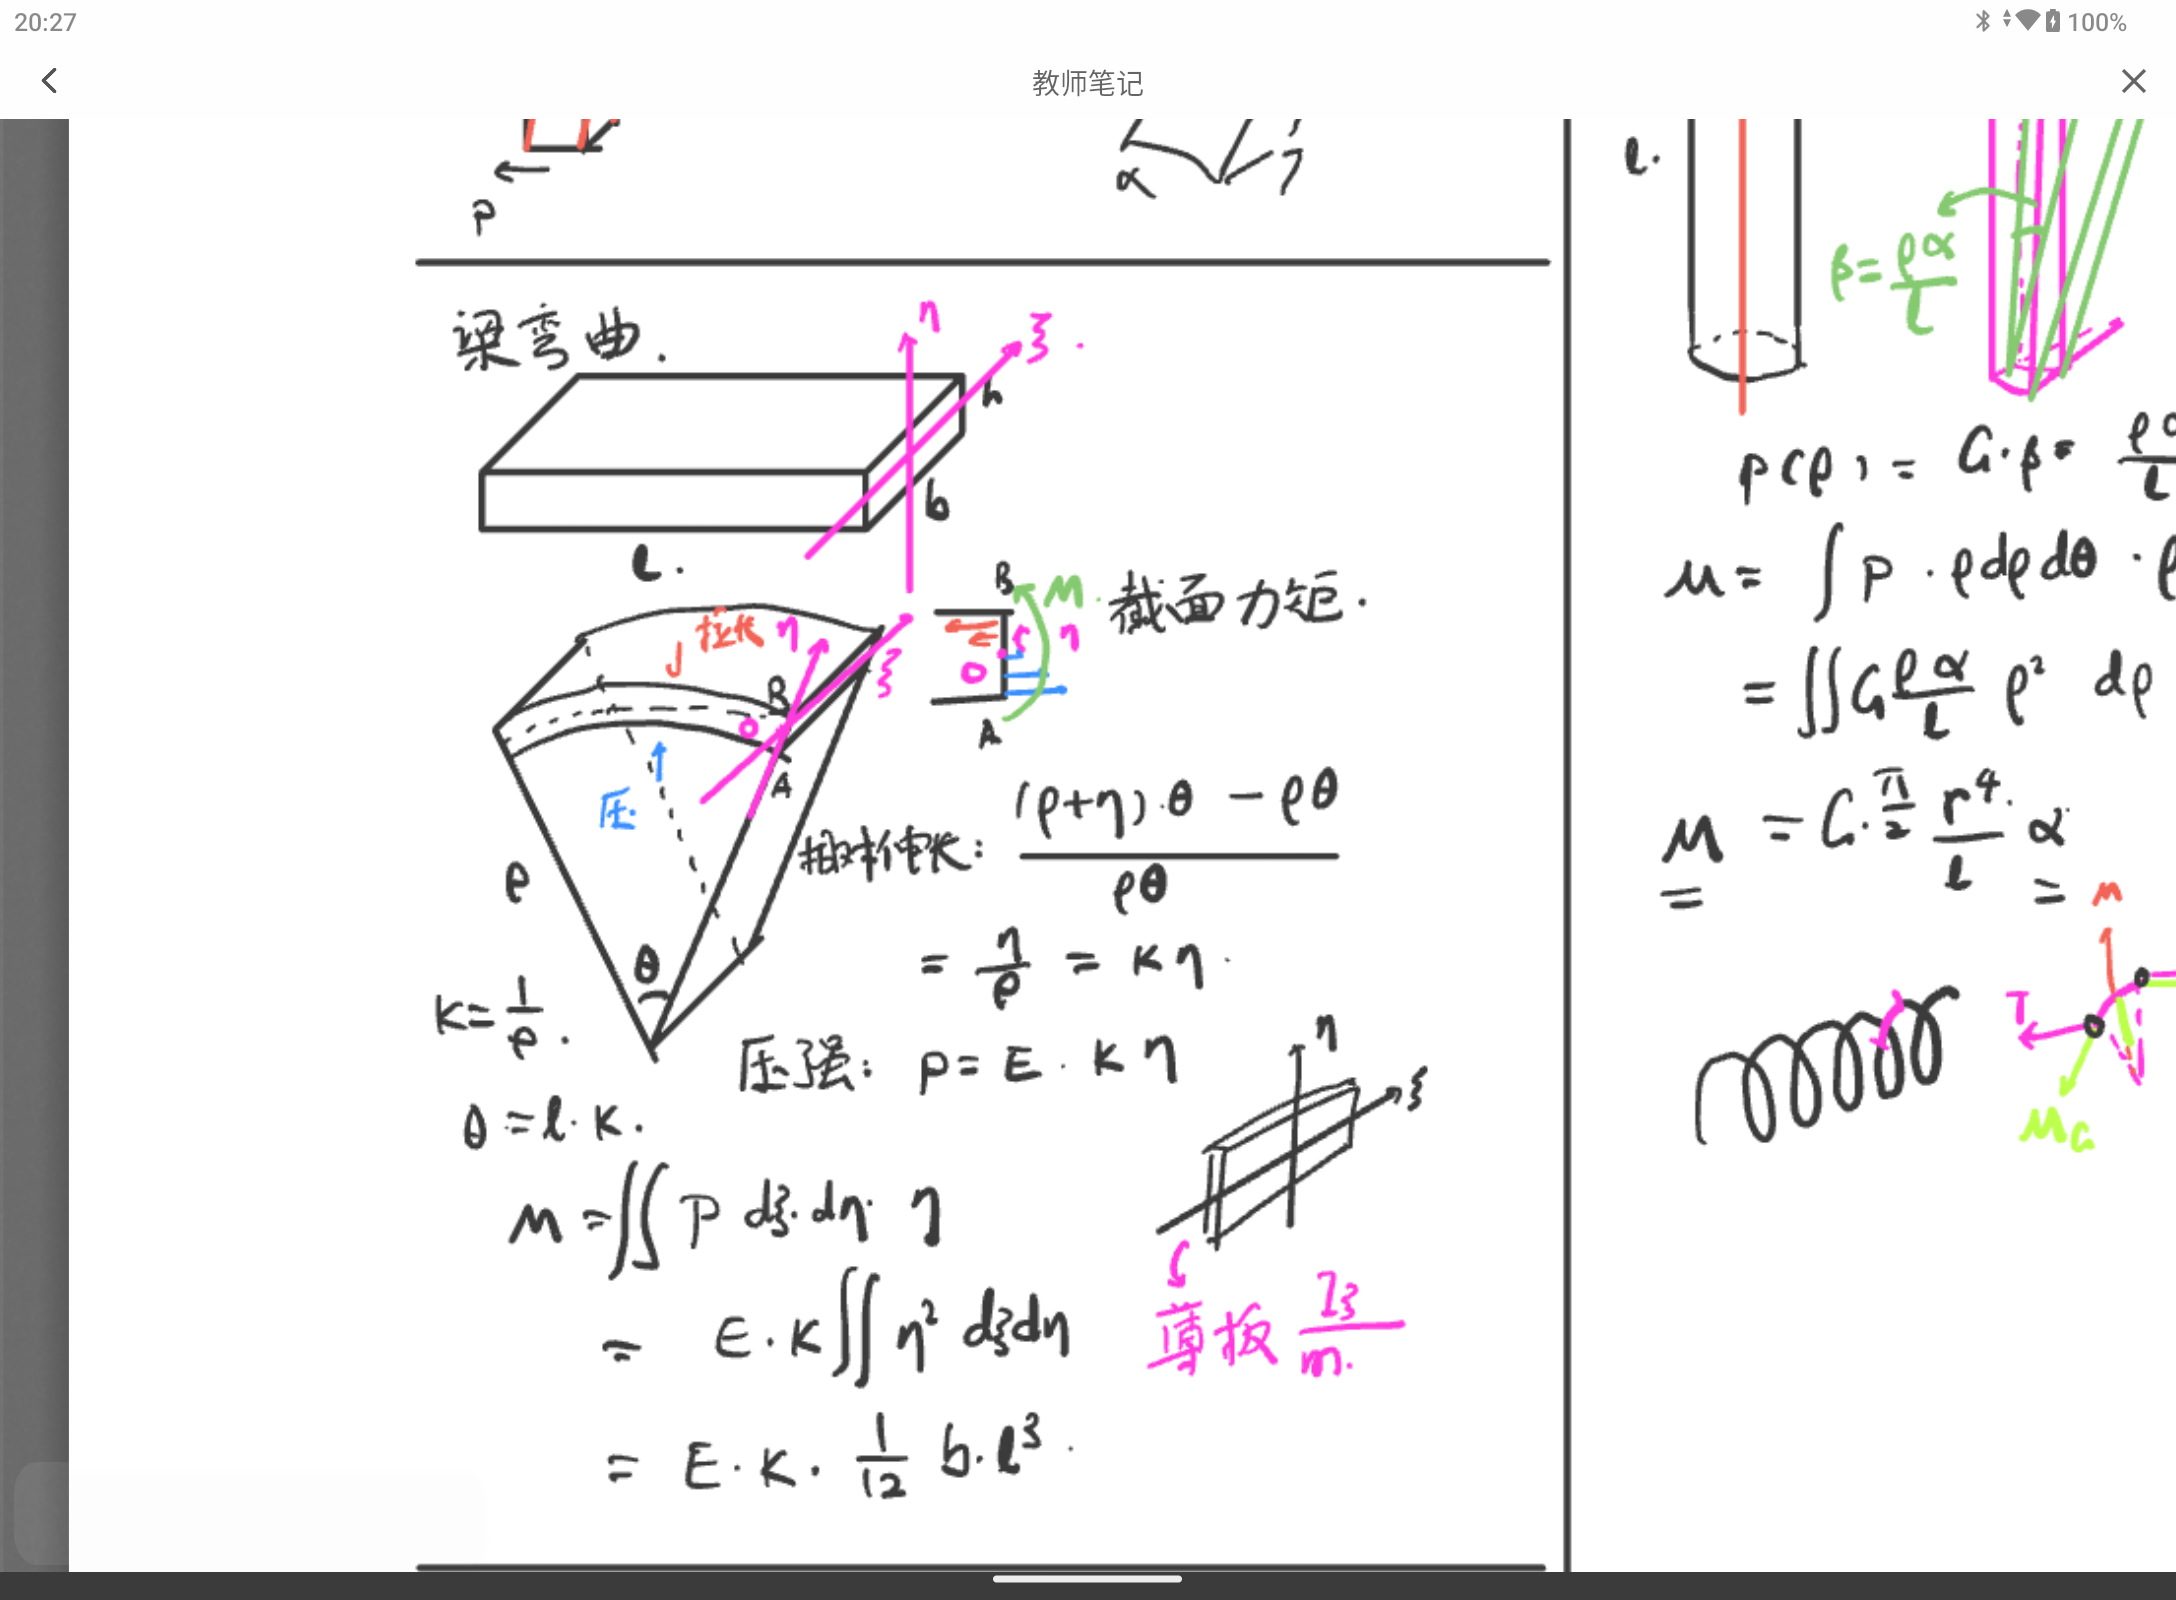 20:27
100%
教师笔记
P
α
η
梁弯曲.
η
ξ.
h
b
l.
拉长
η
ξ
B
O
A
压.
ρ
θ
B
M.
截面力矩.
η
O
A
相对伸长: ((ρ+η)·θ - ρθ)/(ρθ)
= η/ρ = κη.
κ=1/ρ.
压强: P= E·κη
θ=l·κ.
M=∬ P dξ·dη·η
= E·κ∬η² dξdη
= E·κ·1/12 b·l³.
η
ξ
薄板 Iξ/m.
l.
β=ρα/l
P(ρ)= G·β=
M= ∫P·ρdρdθ·ρ
=∬G ρα/l ρ² dρ
M =G·π/2 r⁴/l α
M
T
MG